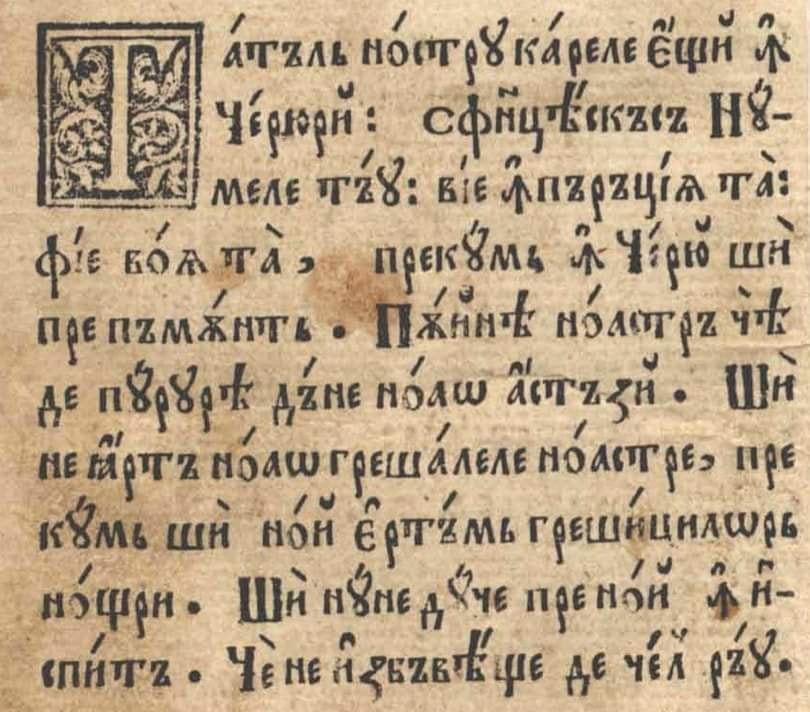 Та́тъль но́стрꙋ ка́реле є҆́щй ꙟ҆
Че́рюрй: Сфи҆нцѣ́скъсъ Нꙋ́-
меле тъ́ꙋ: ві́е ꙟ҆пъръці́ѧ та̀:
фі́е во́ѧ та̀, прекꙋ́мь ꙟ҆ Че́рю̆ шѝ
пре пъмѫ́нть. Пѫ́йнѣ ноа́стръ ч̀ѣ
де пꙋ́рꙋрѣ дъ́не но́аѡ а҆́стъꙁй. Шѝ
не ꙗ҆́ртъ но́аѡ греша́леле ноа́стре, пре
кꙋ́мь шѝ но́й є҆ртъ́мь греши́цилѡрь
но́щри. Шѝ нꙋ́не дꙋ́че пре но́й ꙟ҆ и҆-
спи́тъ. Чѐ не и҆ꙁбъвѣ́ще де че́л̆ ръ́ꙋ.